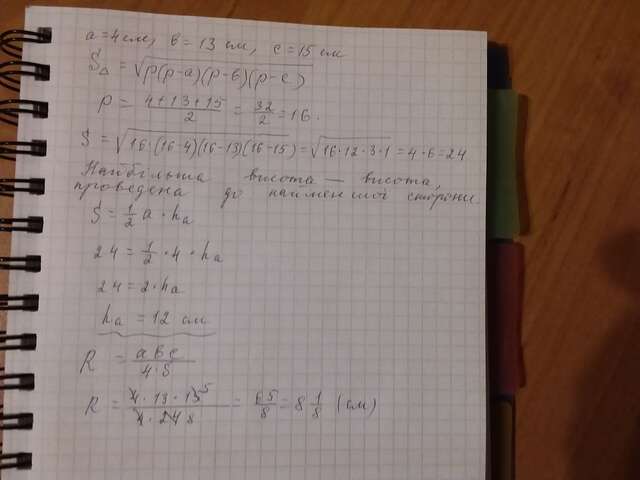 a = 4 см, в = 13 см, с = 15 см
S△ = √p(p−a)(p−в)(p−c)
p = (4+13+15)/2 = 32/2 = 16.
S = √16·(16−4)(16−13)(16−15) = √16·12·3·1 = 4·6 = 24
Найбільша висота — висота,
проведена до найменшої сторони.
S = 1/2 a · ha
24 = 1/2 · 4 · ha
24 = 2 · ha
ha = 12 см
R = aвc/4·S
R = 4·13·15 5/4·24 8 = 65/8 = 8 1/8 (см)